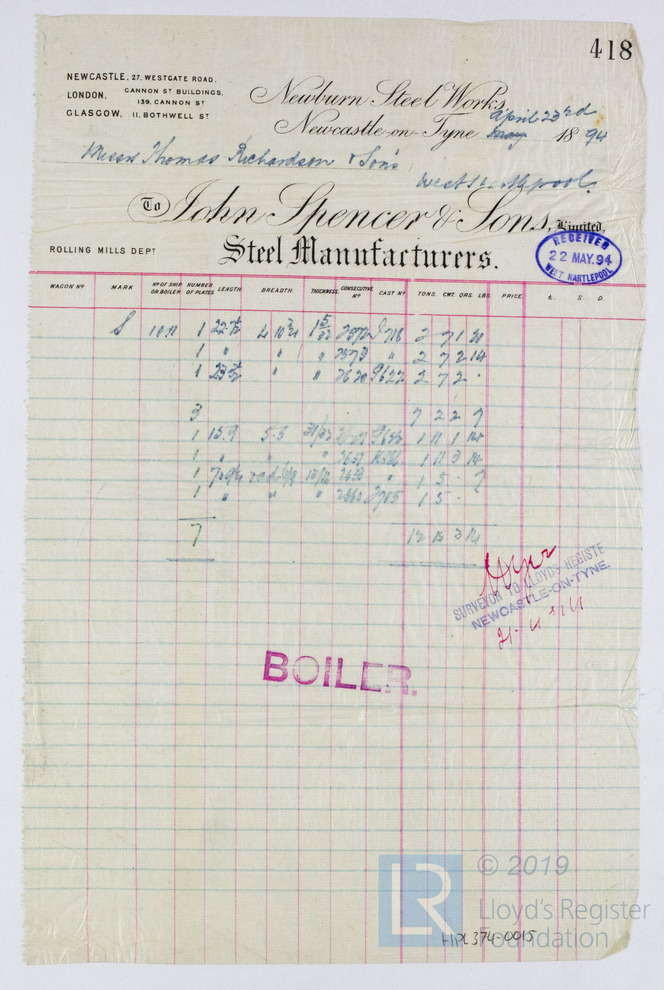 418
NEWCASTLE, 27, WESTGATE ROAD.
LONDON, CANNON ST BUILDINGS, 139, CANNON ST
GLASGOW, 11, BOTHWELL ST
Newburn Steel Works,
April 23rd
Newcastle-on-Tyne may 1894
Messrs Thomas Richardson & Sons
West Hartlepool.
To John Spencer & Sons, Limited,
ROLLING MILLS DEPT
Steel Manufacturers.
RECEIVED
22 MAY. 94
WEST HARTLEPOOL
WAGON No MARK No OF SHIP OR BOILER NUMBER OF PLATES LENGTH BREADTH. THICKNESS. CONSECUTIVE No CAST No TONS. CWT. QRS. LBS. PRICE. £. S. D.
S 1 2 7 1 21
1 " " " 2573 " 2 7 2 14
1 " " 2620 9622 2 7 2 .
3 7 2 2 7
1 15.9 5.5 31/32 1 11 1 14
1 " " " 1 11 3 14
1 1 5 . 7
1 " " " 1 5 .
7 3 14
SURVEYOR TO LLOYDS REGISTE
NEWCASTLE-ON-TYNE.
BOILER.
© 2019
LR Lloyd's Register
Foundation
HPL374-0015